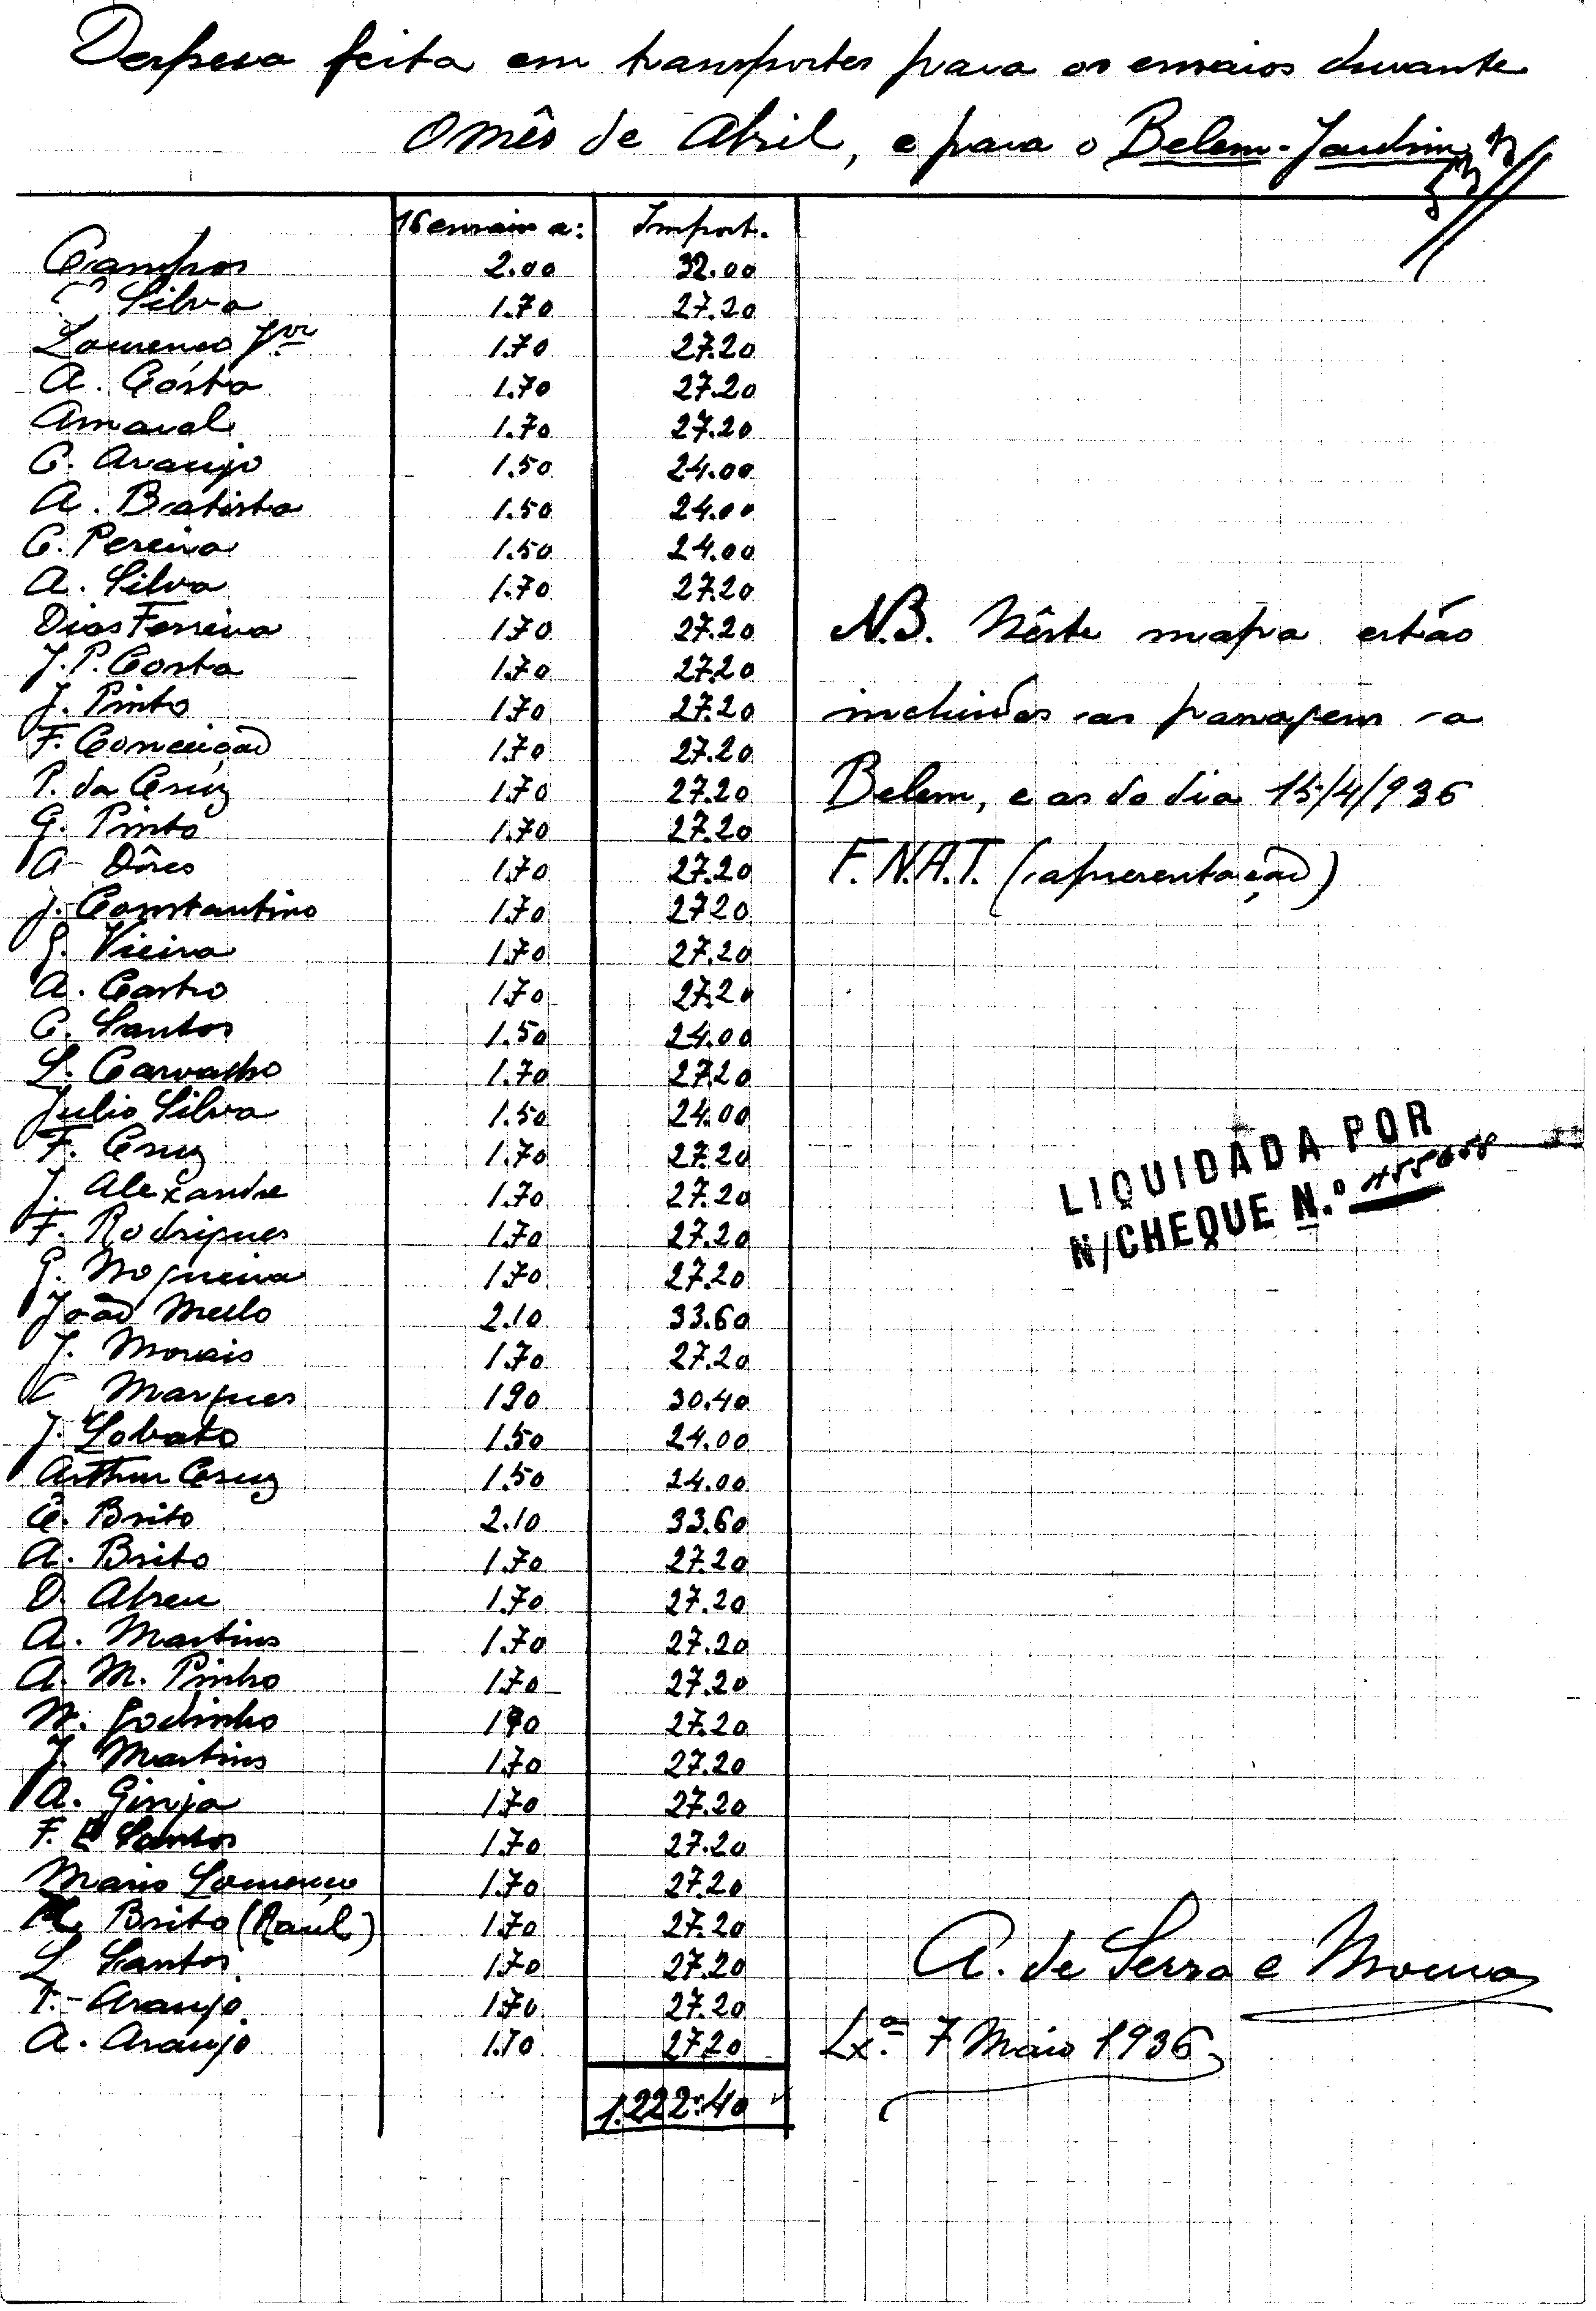 Despesa feita em transportes para os ensaios durante
o mês de Abril, e para o Belem-Jardim
16 ensaios a: Import.
Campos 2.00 32.00
Silva 1.70 27.20
Lourenço Jor 1.70 27.20
A. Costa 1.70 27.20
Amaral 1.70 27.20
C. Araujo 1.50 24.00
A. Batista 1.50 24.00
C. Pereira 1.50 24.00
A. Silva 1.70 27.20
Dias Ferreira 1.70 27.20
J. P. Costa 1.70 27.20
J. Pinto 1.70 27.20
F. Conceição 1.70 27.20
P. da Cruz 1.70 27.20
G. Pinto 1.70 27.20
A. Dôres 1.70 27.20
J. Constantino 1.70 27.20
G. Vieira 1.70 27.20
A. Castro 1.70 27.20
C. Santos 1.50 24.00
L. Carvalho 1.70 27.20
Julio Silva 1.50 24.00
F. Cruz 1.70 27.20
J. Alexandre 1.70 27.20
F. Rodrigues 1.70 27.20
G. Nogueira 1.70 27.20
João Mello 2.10 33.60
J. Morais 1.70 27.20
C Marques 1.90 30.40
J. Lobato 1.50 24.00
Arthur Cruz 1.50 24.00
C. Brito 2.10 33.60
A. Brito 1.70 27.20
D. Abreu 1.70 27.20
A. Martins 1.70 27.20
A. M. Pinho 1.70 27.20
M. Godinho 1.70 27.20
J. Martins 1.70 27.20
A. Ginja 1.70 27.20
F. Santos 1.70 27.20
Mario Lourenço 1.70 27.20
Brito (Raúl) 1.70 27.20
L Santos 1.70 27.20
T. Araujo 1.70 27.20
A. Araujo 1.70 27.20
1.222.40
N.B. Nêste mapa estão
incluidas as passagens a
Belem, e as do dia 15/4/936
F.N.A.T. (apresentação)
LIQUIDADA POR
N/CHEQUE N.º
A. de Serra e Moura
Lx.ª 7 Maio 1936